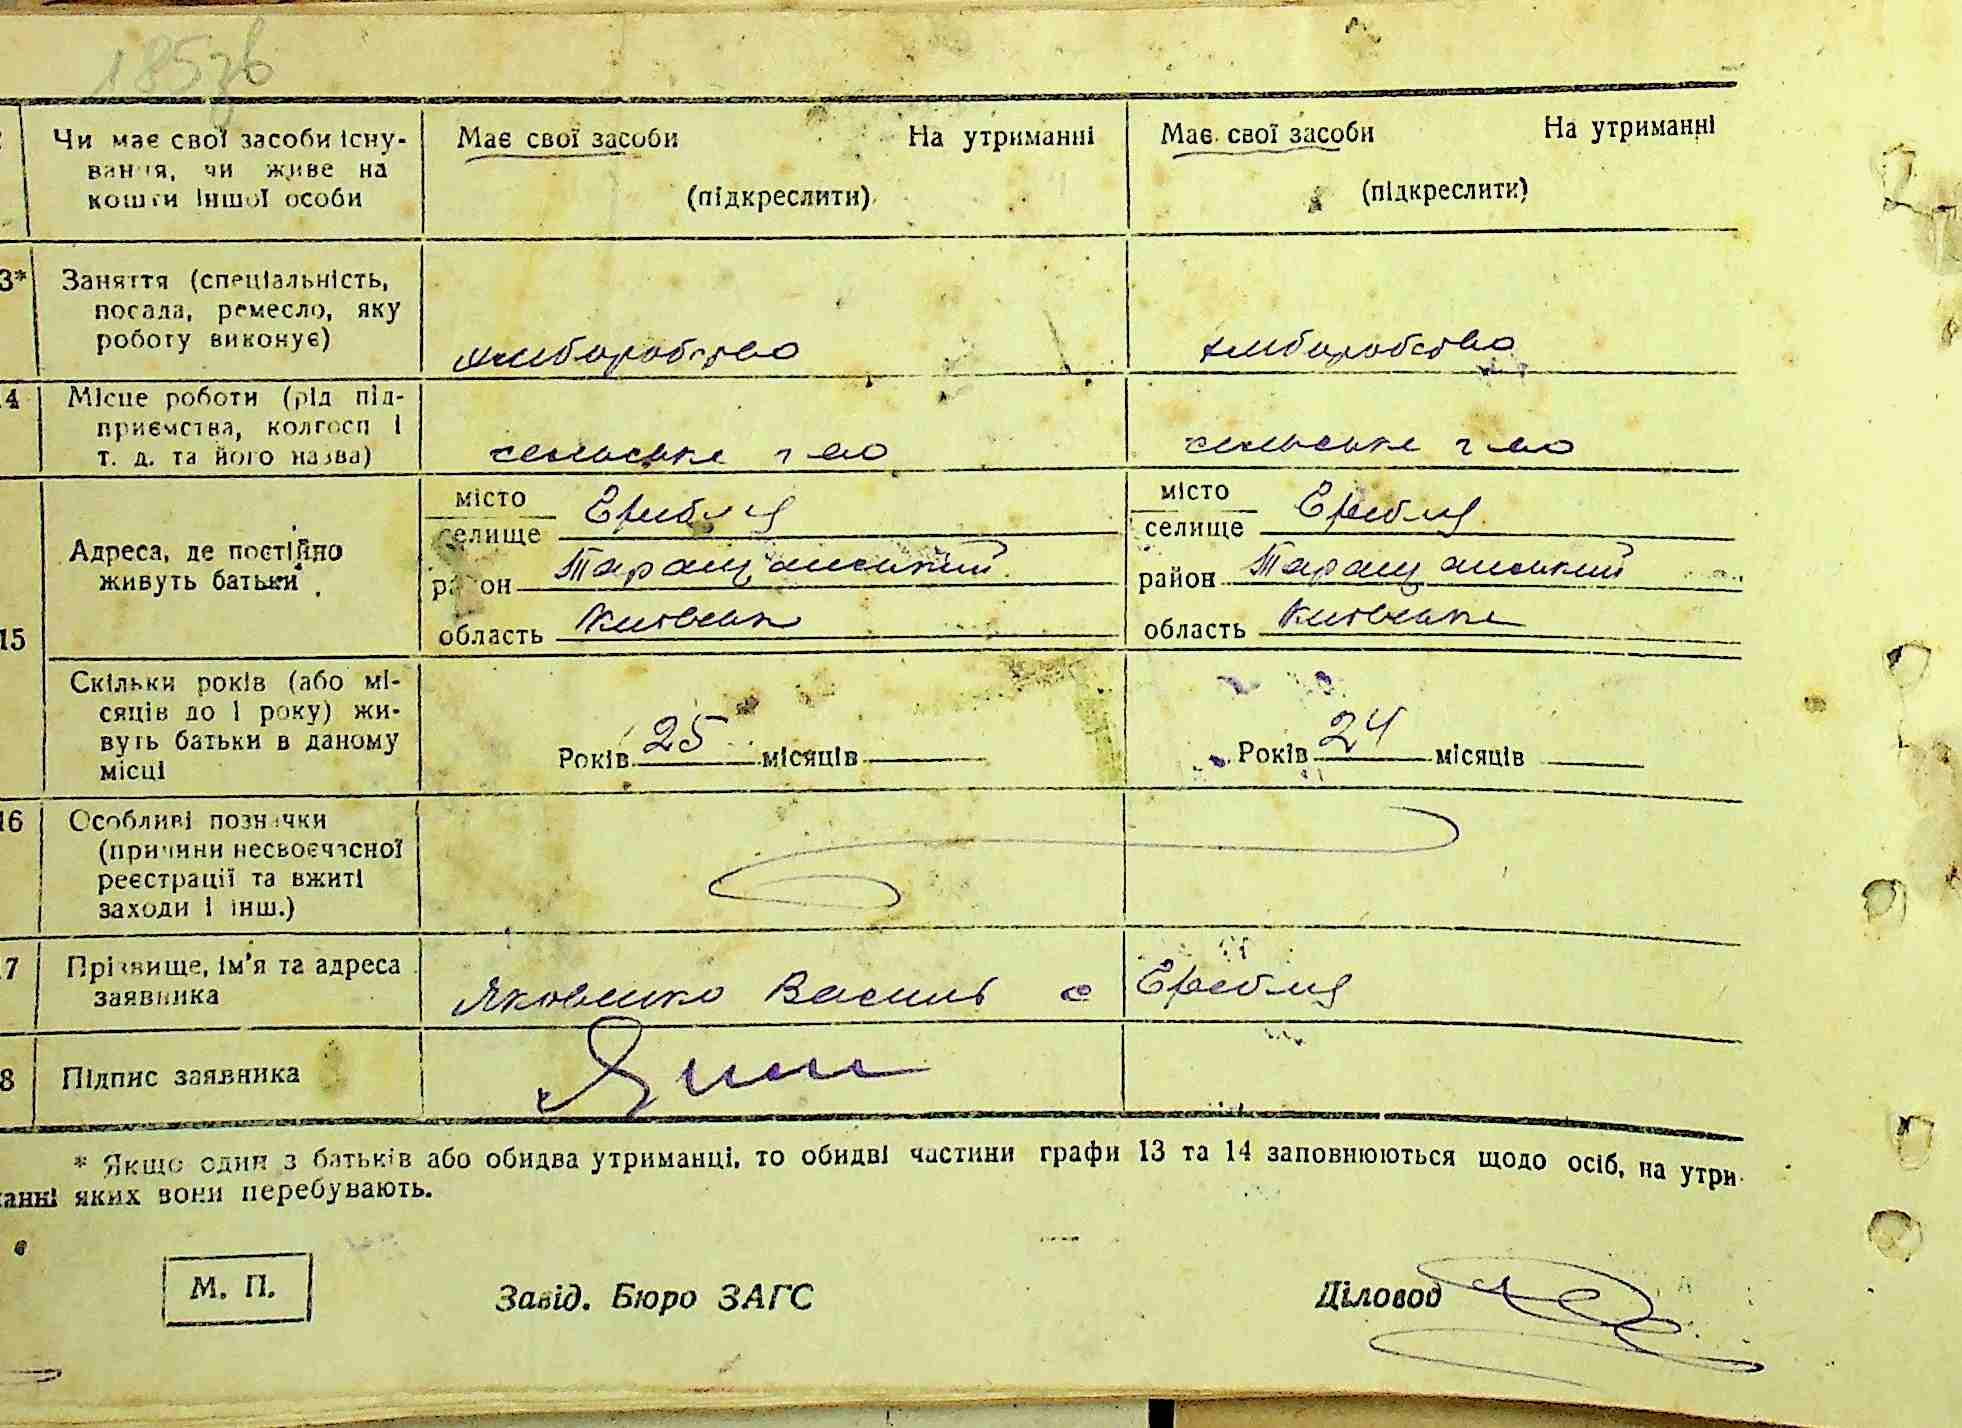 185зв
Чи має свої засоби існу-
вання, чи живе на
кошти іншої особи
Має свої засоби На утриманні
(підкреслити)
Має свої засоби На утриманні
(підкреслити)
3*
Заняття (спеціальність,
посада, ремесло, яку
роботу виконує)
хліборобство
хліборобство
4
Місце роботи (рід під-
приємства, колгосп і
т. д. та його назва)
сельське г-во
сельське г-во
15
Адреса, де постійно
живуть батьки
місто
селище
район Таращанський
область
місто
селище
район Таращанський
область Київське
Скільки років (або мі-
сяців до 1 року) жи-
вуть батьки в даному
місці
Років 25 місяців
Років 24 місяців
16
Особливі позначки
(причини несвоєчасної
реєстрації та вжиті
заходи і інш.)
7
Прізвище, ім'я та адреса
заявника
Яковенко Василь с
8
Підпис заявника
* Якщо один з батьків або обидва утриманці, то обидві частини графи 13 та 14 заповнюються щодо осіб, на утри-
анні яких вони перебувають.
М. П.
Завід. Бюро ЗАГС
Діловод